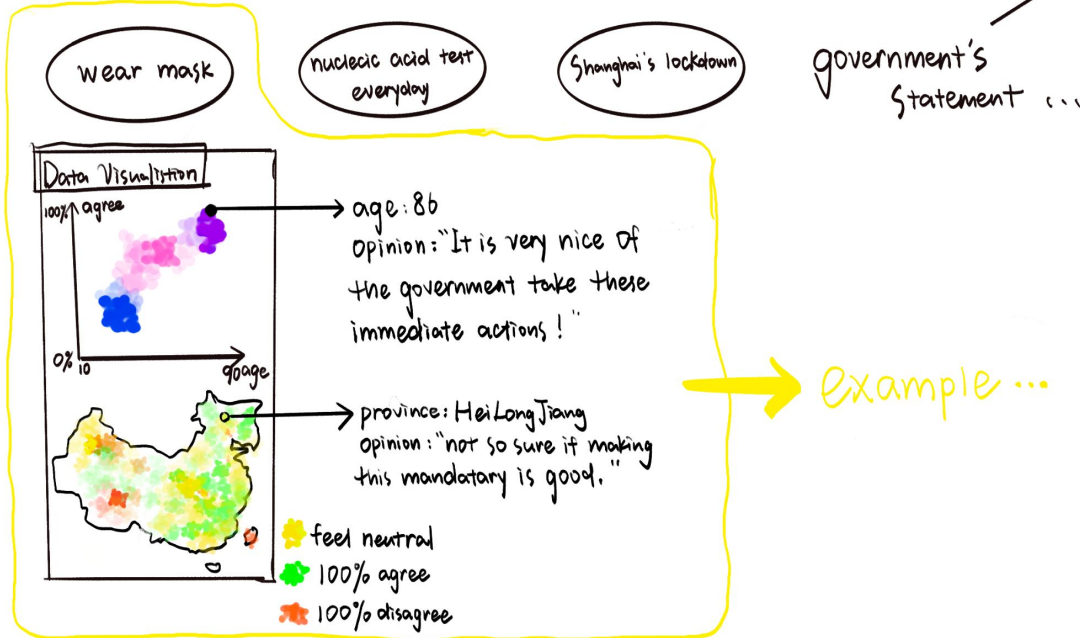 wear mask
nuclecic acid test
everyday
Shanghai's lockdown
government's
statement ...
Data Visualistion
100% agree
0% 10
90 age
age: 86
opinion: "It is very nice of
the government take these
immediate actions! "
province: HeiLongJiang
opinion: "not so sure if making
this mandatary is good."
feel neutral
100% agree
100% disagree
example ...